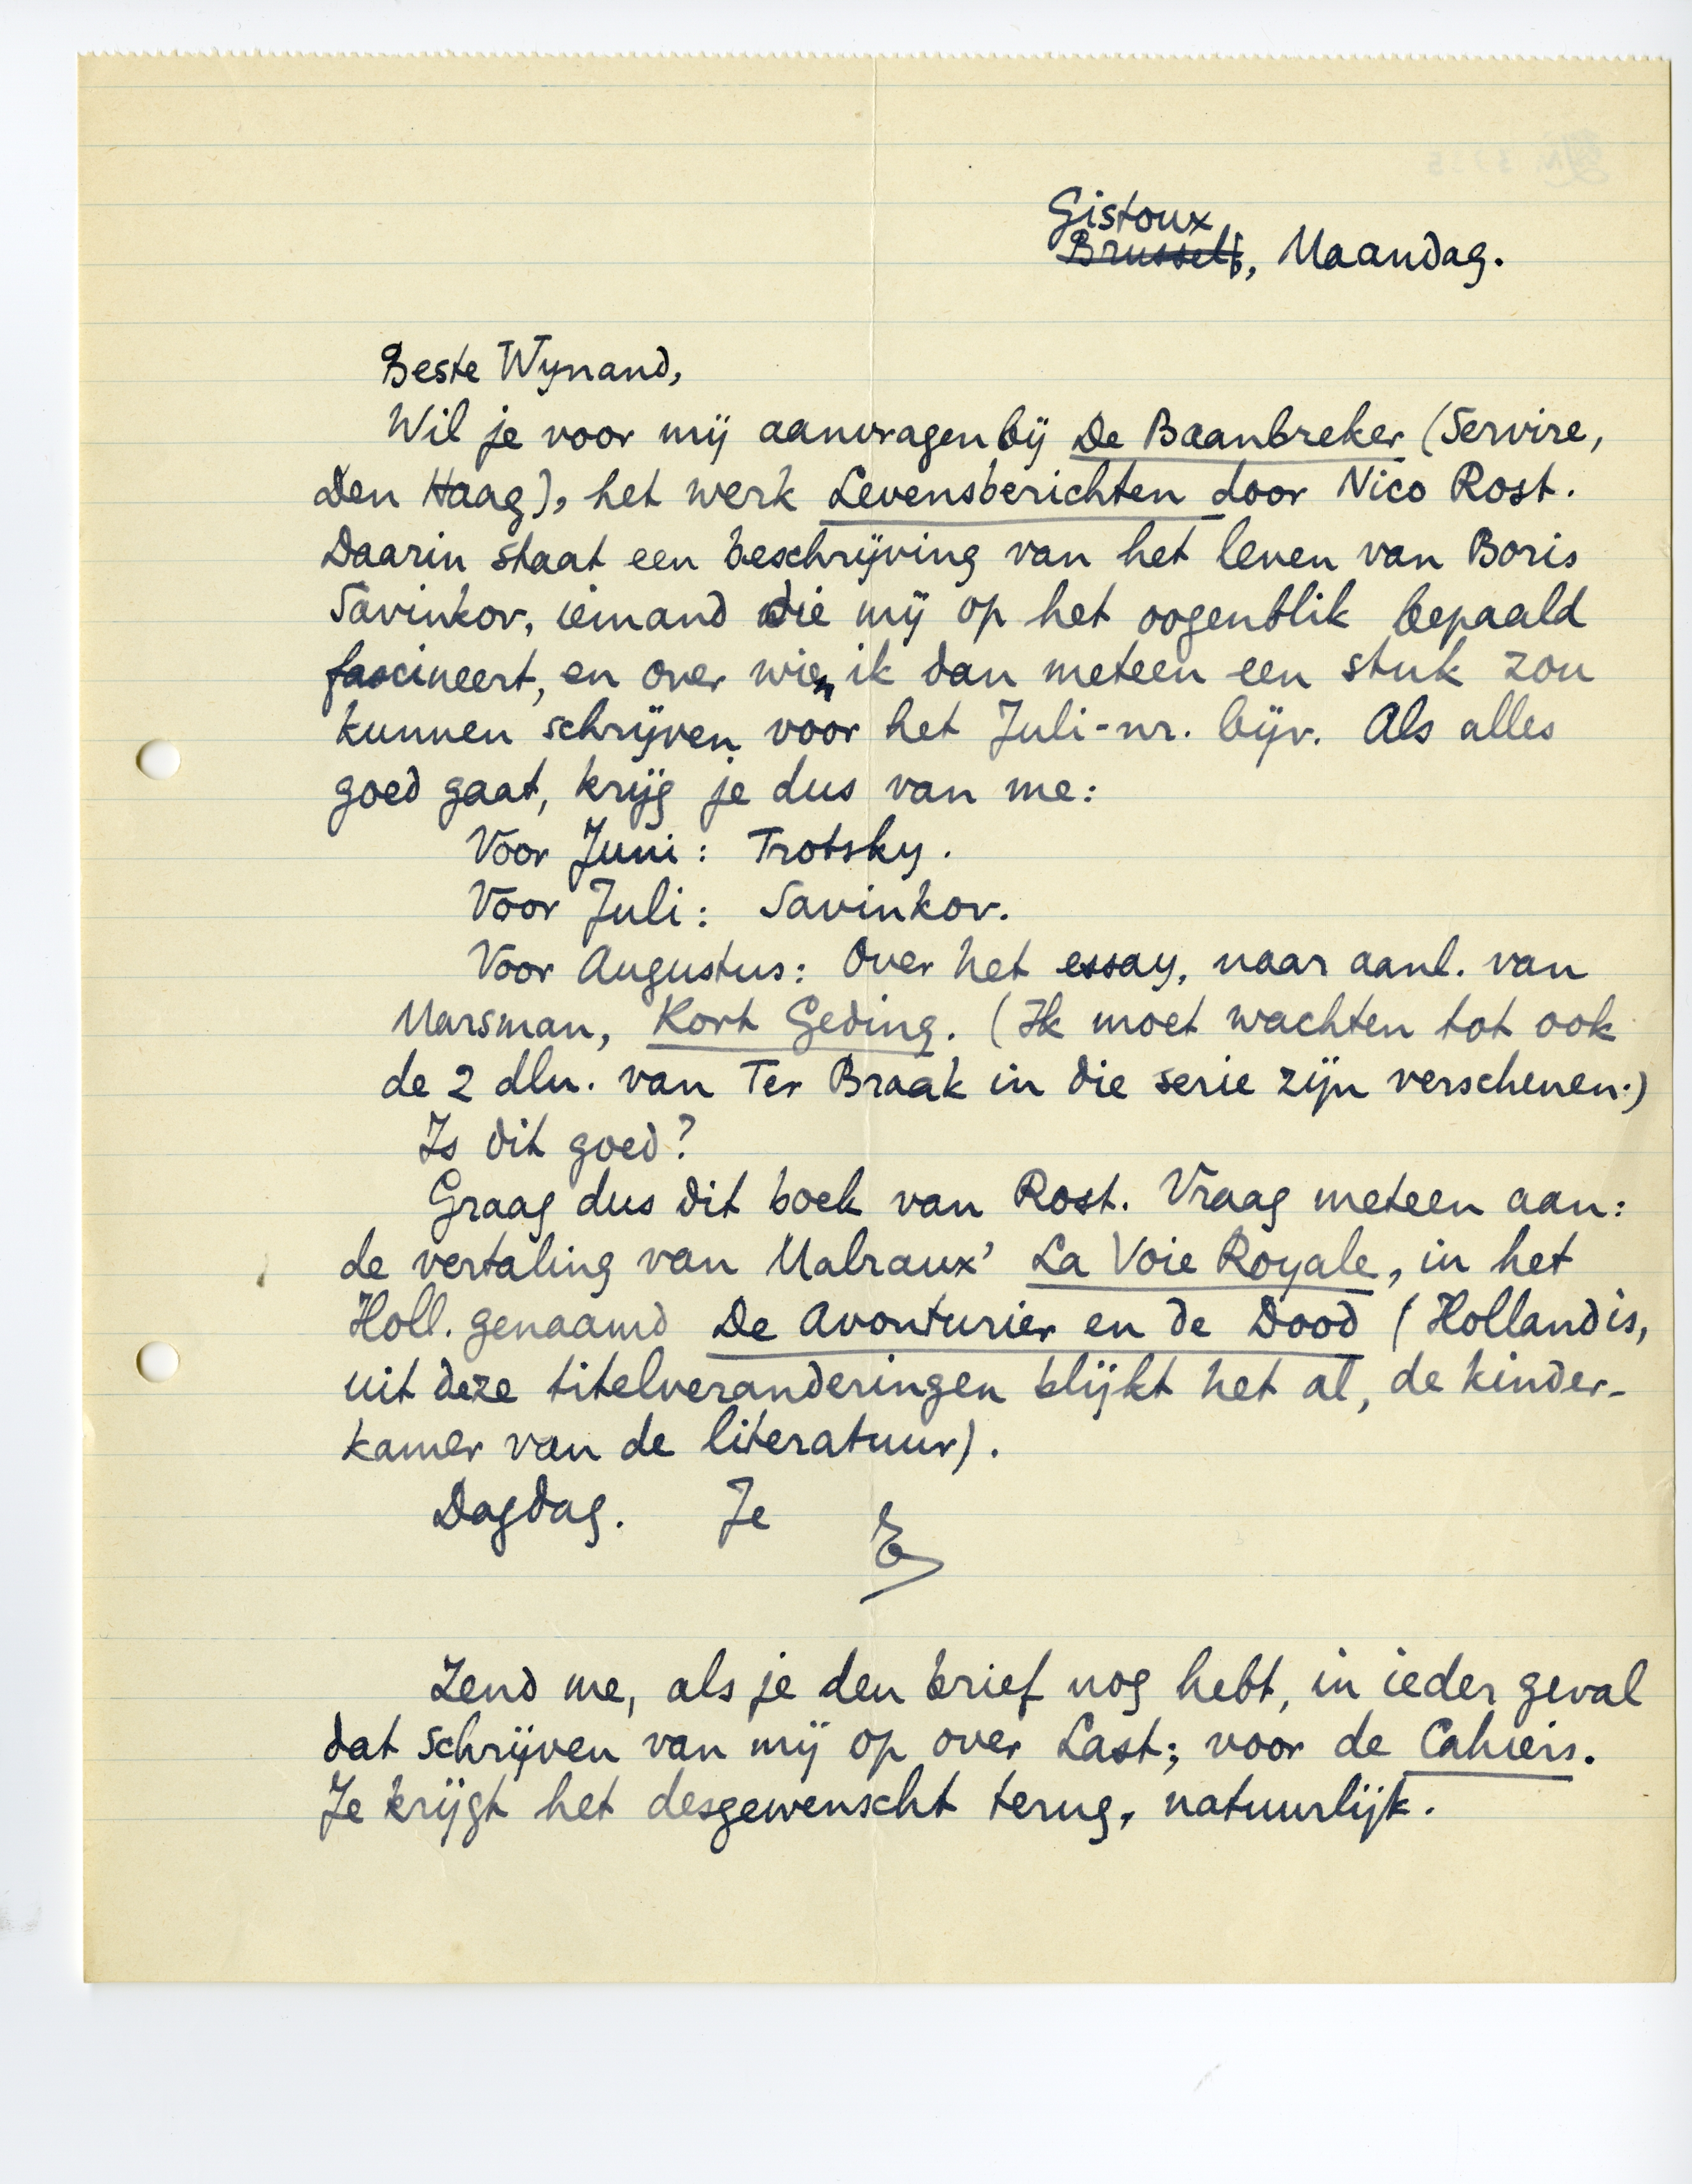 Gistoux
Brussel, Maandag.
Beste Wynand,
Wil je voor mij aanvragen bij De Baanbreker (Servire,
Den Haag), het werk Levensberichten door Nico Rost.
Daarin staat een beschrijving van het leven van Boris
Savinkov, iemand die mij op het oogenblik bepaald
fascineert, en over wien ik dan meteen een stuk zou
kunnen schrijven voor het Juli-nr. bijv. Als alles
goed gaat, krijg je dus van me:
Voor Juni: Trotsky.
Voor Juli: Savinkov.
Voor Augustus: Over het essay, naar aanl. van
Marsman, Kort Geding. (Ik moet wachten tot ook
de 2 dln. van Ter Braak in die serie zijn verschenen.)
Is dit goed?
Graag dus dit boek van Rost. Vraag meteen aan:
de vertaling van Malraux' La Voie Royale, in het
Holl. genaamd De Avonturier en de Dood (Holland is,
uit deze titelveranderingen blijkt het al, de kinder-
kamer van de literatuur).
Dagdag. Je
E
Zend me, als je den brief nog hebt, in ieder geval
dat schrijven van mij op over Last; voor de Cahiers.
Je krijgt het desgewenscht terug, natuurlijk.